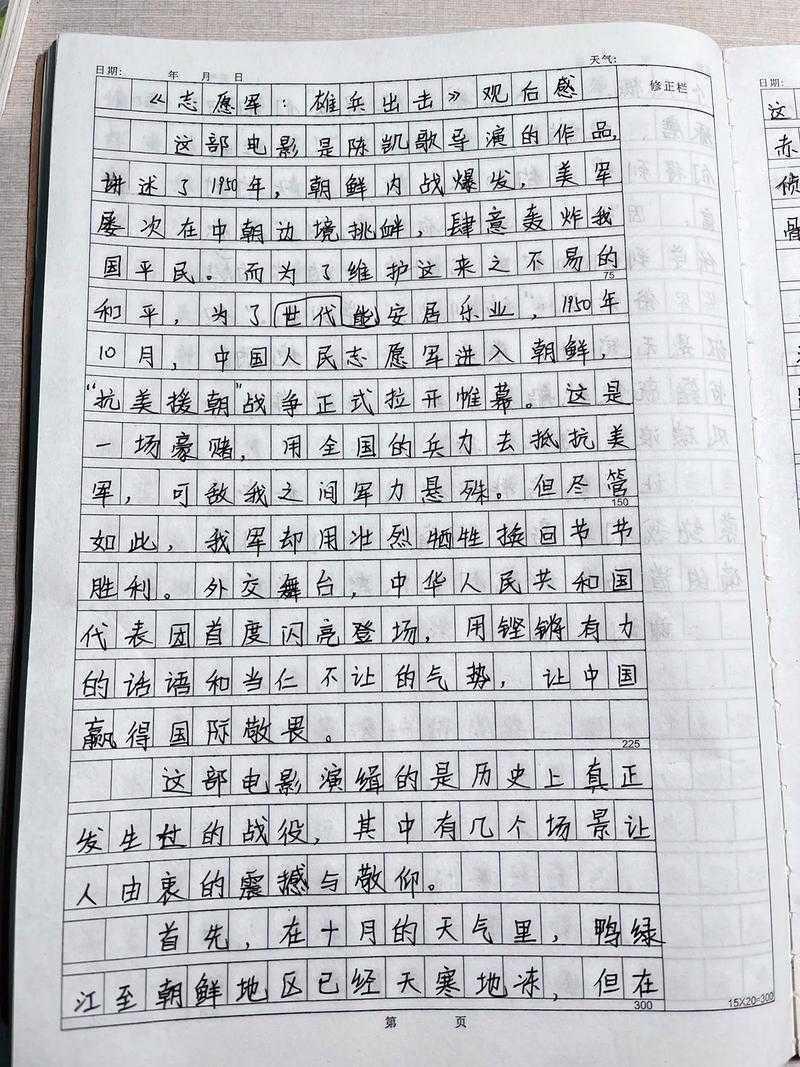 日期: 年 月 日 天气:
修正栏
《志愿军：雄兵出击》观后感
这部电影是陈凯歌导演的作品,
讲述了1950年，朝鲜内战爆发，美军
屡次在中朝边境挑衅，肆意轰炸我
国平民。而为了维护这来之不易的
75
和平，为了世代能安居乐业，1950年
10月，中国人民志愿军进入朝鲜，
“抗美援朝”战争正式拉开帷幕。这是
一场豪赌，用全国的兵力去抵抗美
军，可敌我之间军力悬殊。但尽管
150
如此，我军却用壮烈牺牲换回节节
胜利。外交舞台，中华人民共和国
代表团首度闪亮登场，用铿锵有力
的话语和当仁不让的气势，让中国
赢得国际敬畏。
225
这部电影演缉的是历史上真正
发生过的战役，其中有几个场景让
人由衷的震撼与敬仰。
首先，在十月的天气里，鸭绿
江至朝鲜地区已经天寒地冻，但在
300
15X20=300
第 页
日期:
这
赤
侦